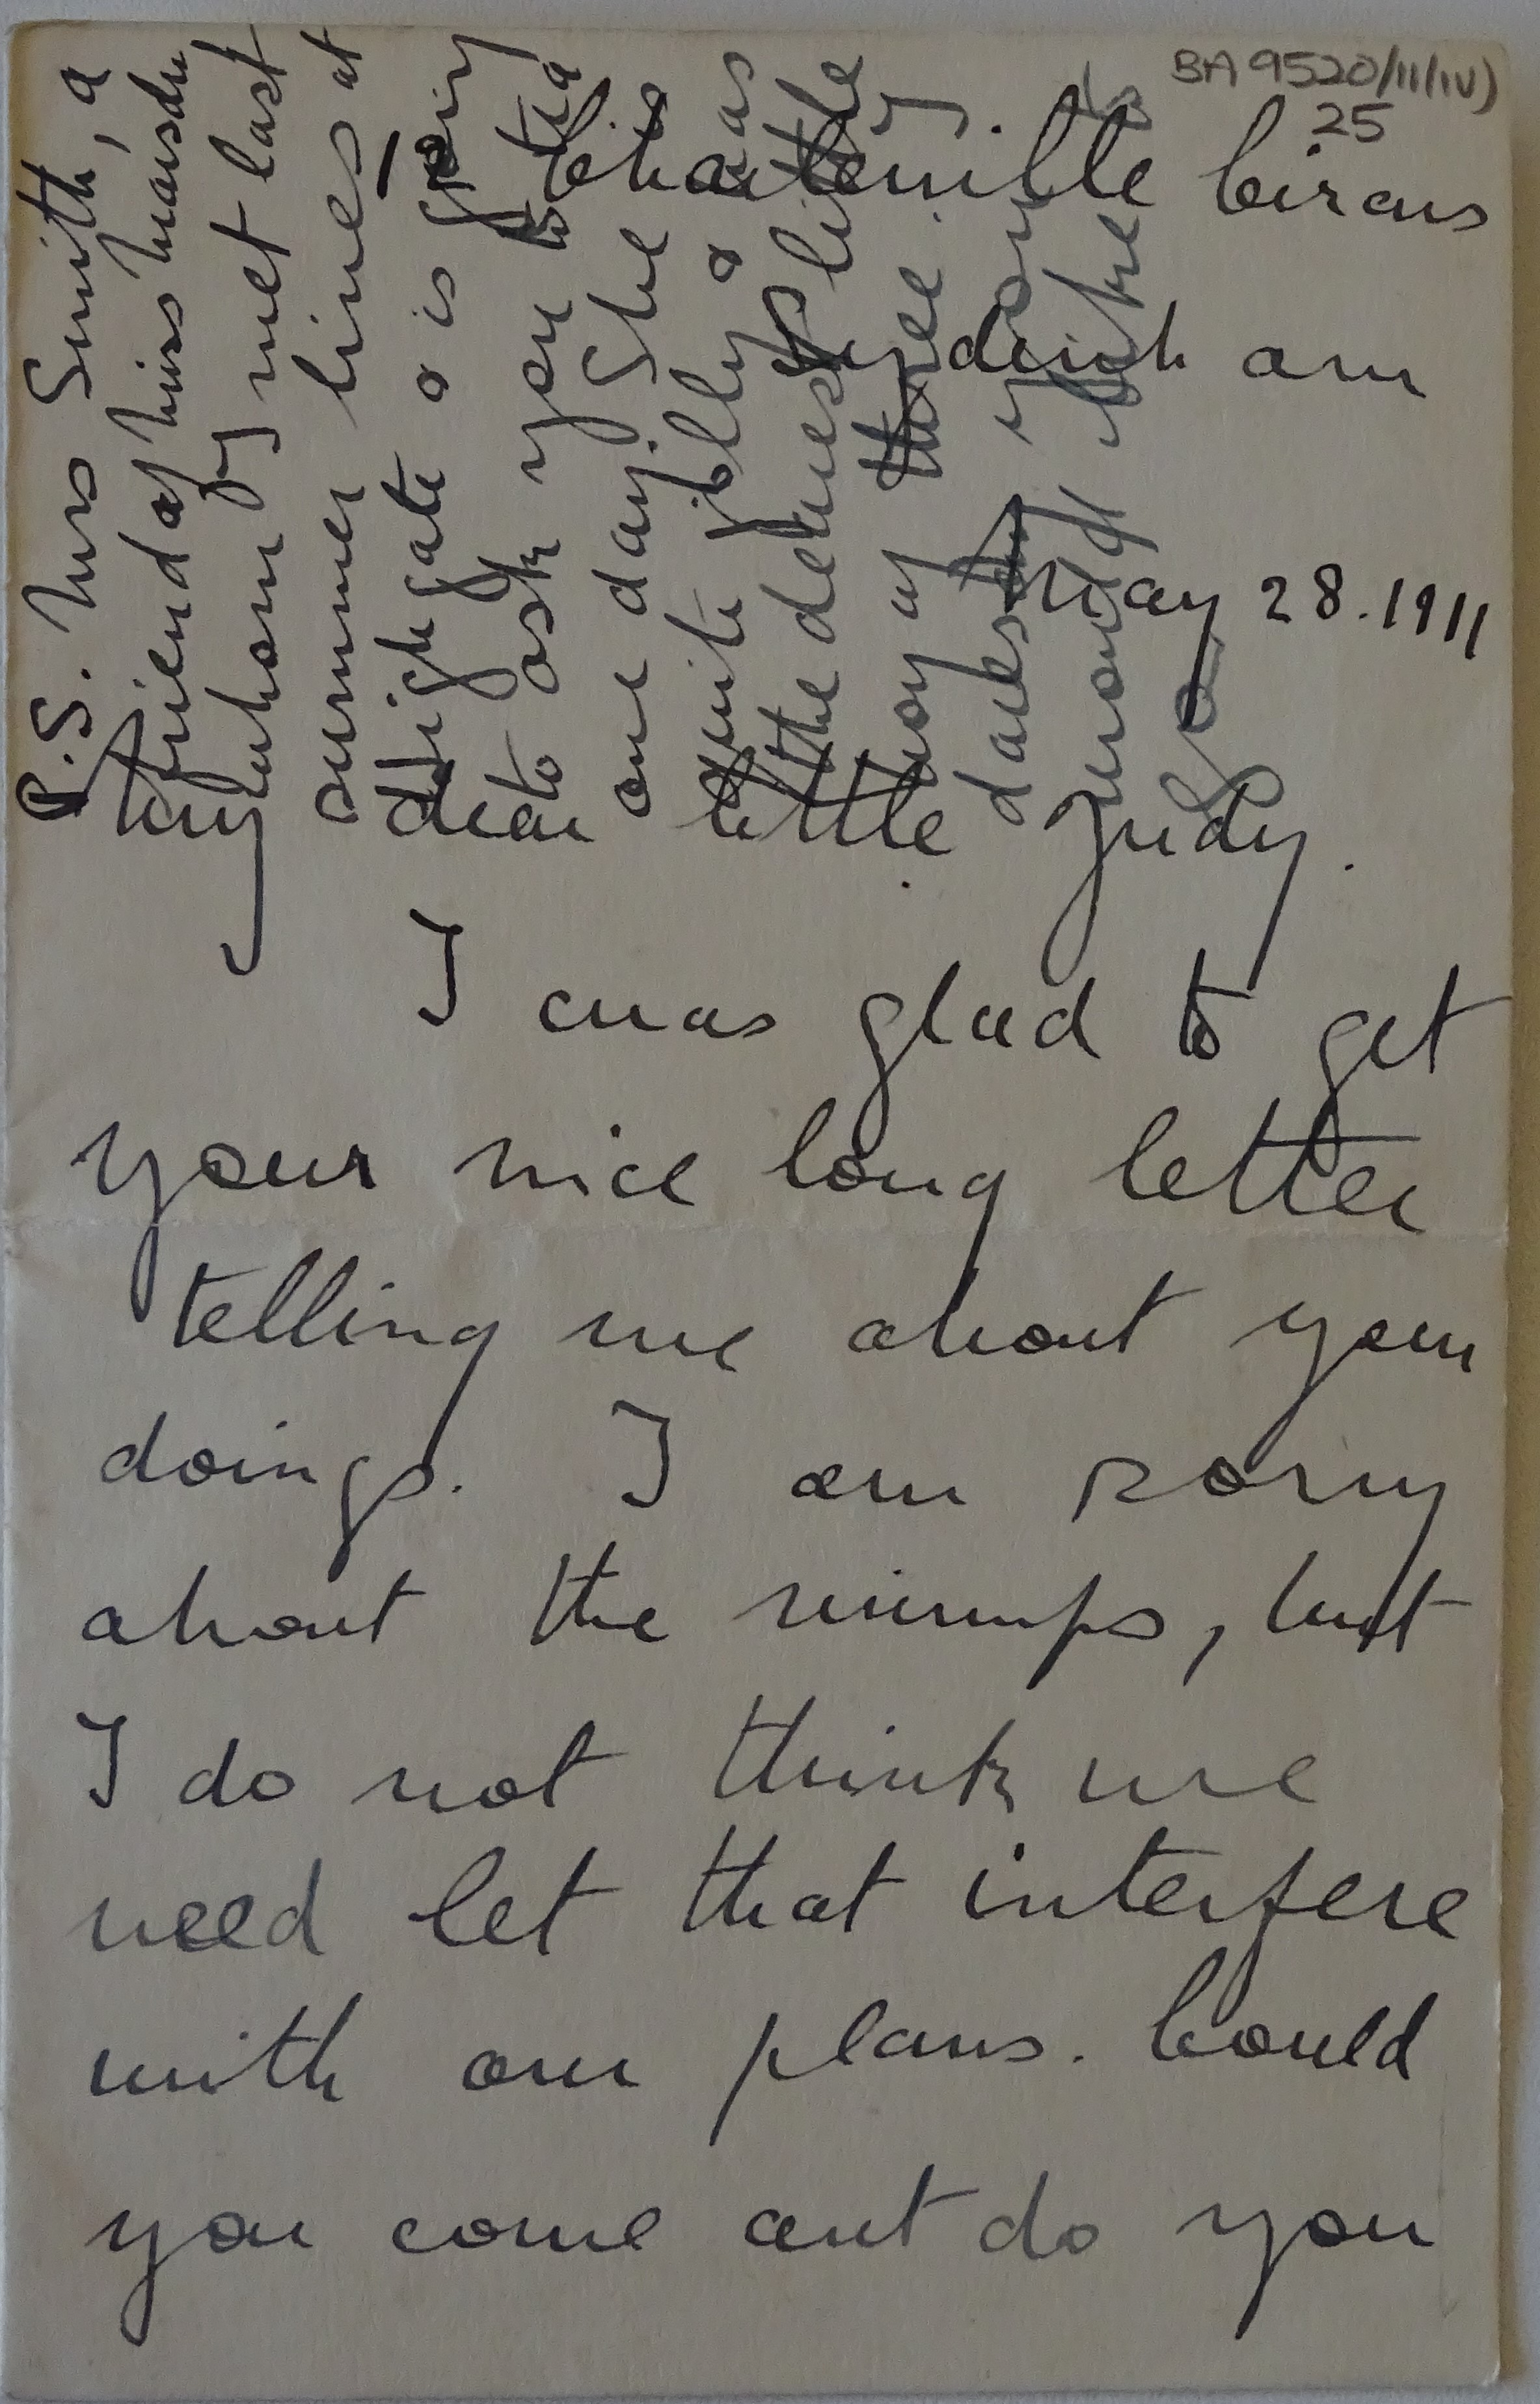 BA 9520/11/(iv)
25
Charleville Circus
Sydenham
May 28.1911
My dear little Judy.
I was glad to get
your nice long letter
telling me about your
doings. I am sorry
about the mumps, but
I do not think we
need let that interfere
with our plans. Could
you come out do you
P.S. Mrs Smith, a
friend of Miss Marsden
whom I met last
summer lives at
Highgate & is going
to ask you to tea
one day. She is
quite jolly & has
the dearest little
boy of three.
daresay you
would like to
go